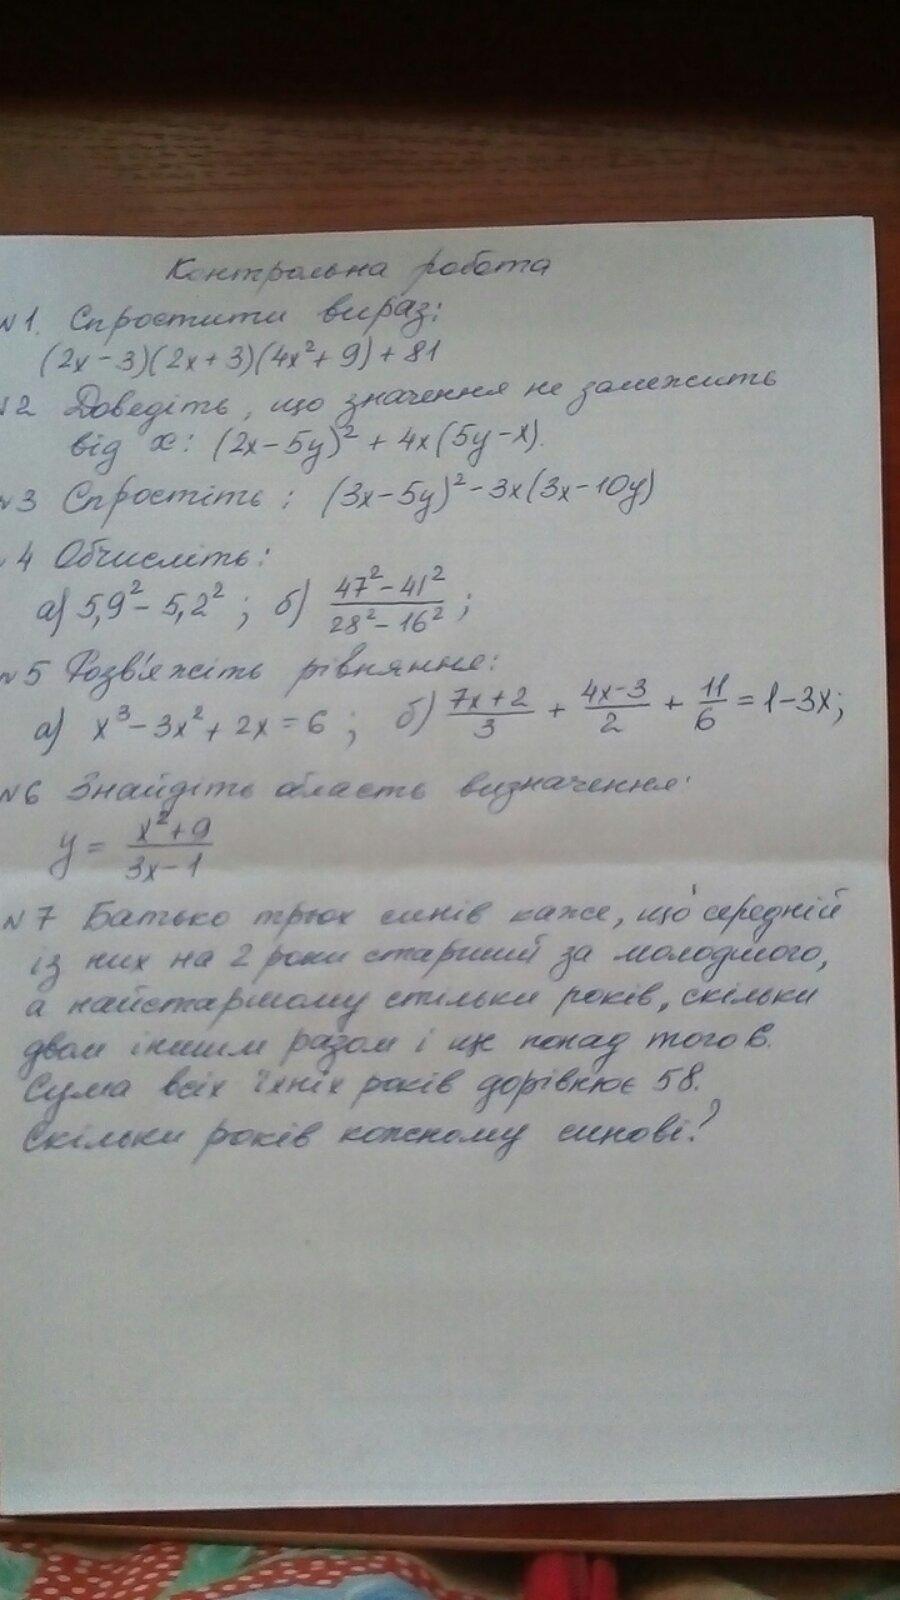 Контрольна робота
№1. Спростити вираз:
(2x-3)(2x+3)(4x²+9)+81
№2 Доведіть, що значення не залежить
від x: (2x-5y)²+4x(5y-x).
№3 Спростіть: (3x-5y)²-3x(3x-10y)
№4 Обчисліть:
а) 5,9²-5,2²; б) (47²-41²)/(28²-16²);
№5 Розв'яжіть рівняння:
а) x³-3x²+2x=6; б) (7x+2)/3 + (4x-3)/2 + 11/6 = 1-3x;
№6 Знайдіть область визначення:
y = (x²+9)/(3x-1)
№7 Батько трьох синів каже, що середній
із них на 2 роки старший за молодшого,
а найстаршому стільки років, скільки
двом іншим разом і ще понад того 6.
Сума всіх їхніх років дорівнює 58.
Скільки років кожному синові?